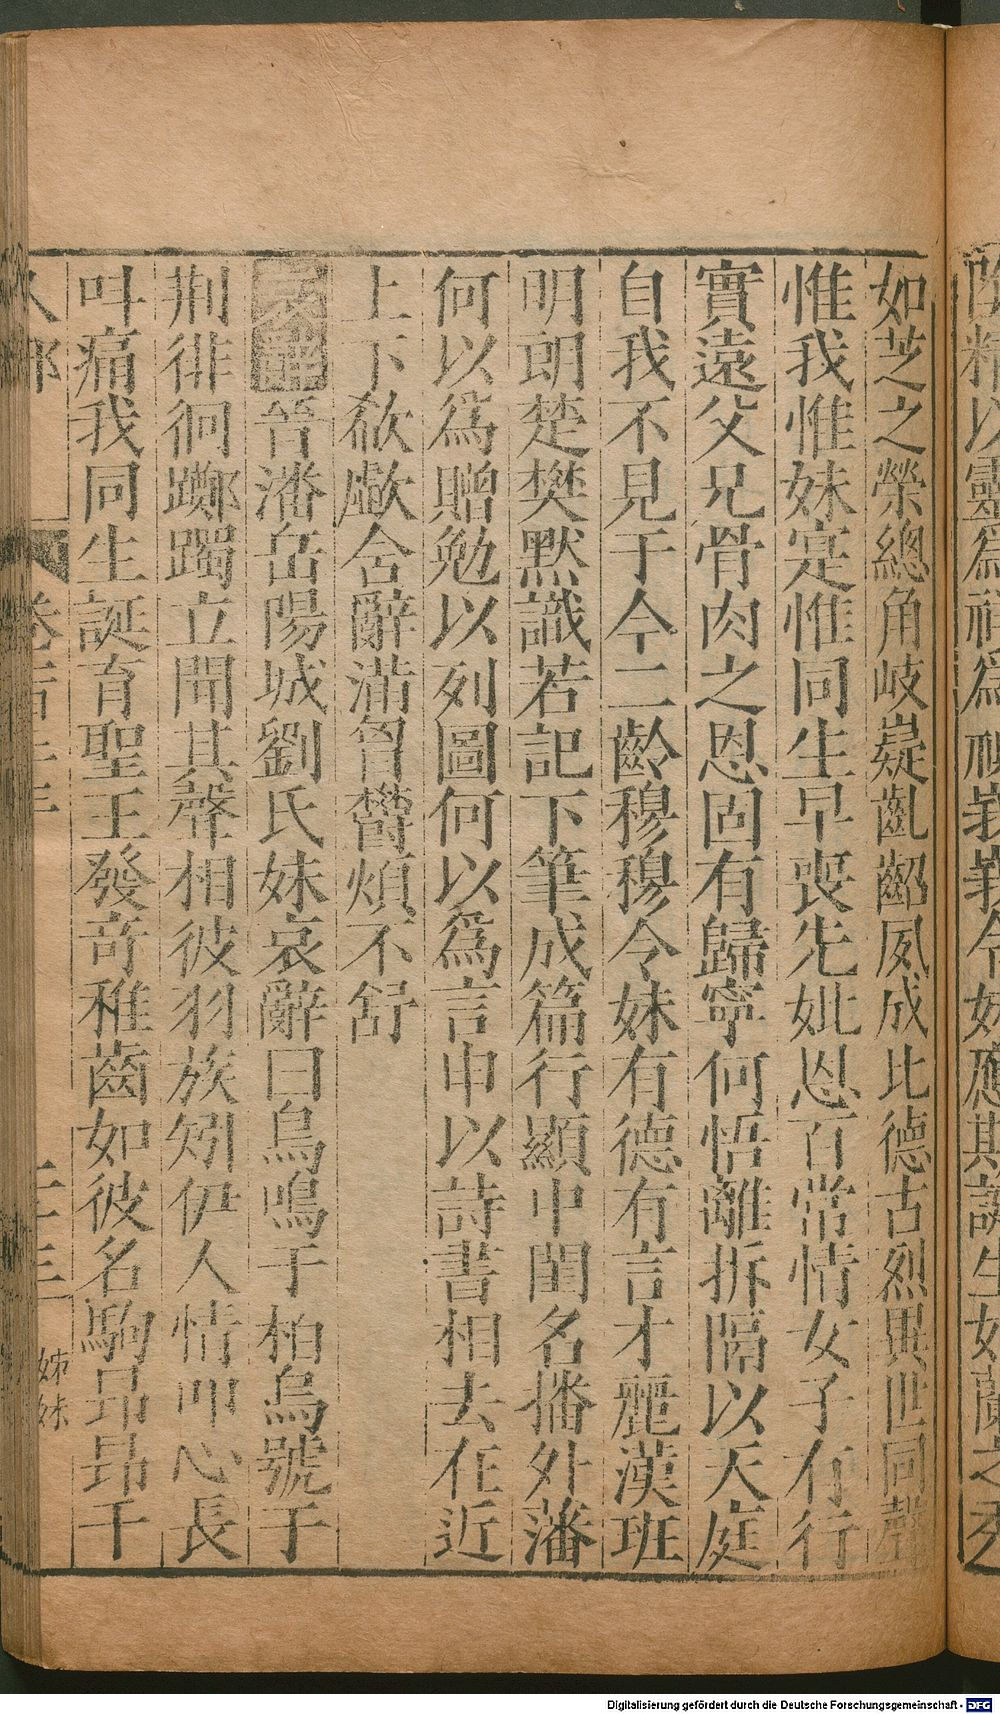 如芝之榮總角岐嶷齓齠夙成比德古烈異世同聲
惟我惟妹寔惟同生早喪先妣恩百常情女子有行
實遠父兄骨肉之恩固有歸寧何悟離拆隔以天庭
自我不見于今二齡穆穆令妹有德有言才麗漢班
明朗楚樊默識若記下筆成篇行顯中閨名播外藩
何以為贈勉以列圖何以為言申以詩書相去在近
上下欷歔含辭滿胷鬱煩不舒
晉潘岳陽城劉氏妹哀辭曰鳥鳴于柏烏號于
荆徘徊躑躅立聞其聲相彼羽族矧伊人情叩心長
叫痛我同生誕育聖王發奇稚齒如彼名駒昂昂千
人部
二十三
姊妹
Digitalisierung gefördert durch die Deutsche Forschungsgemeinschaft - DFG